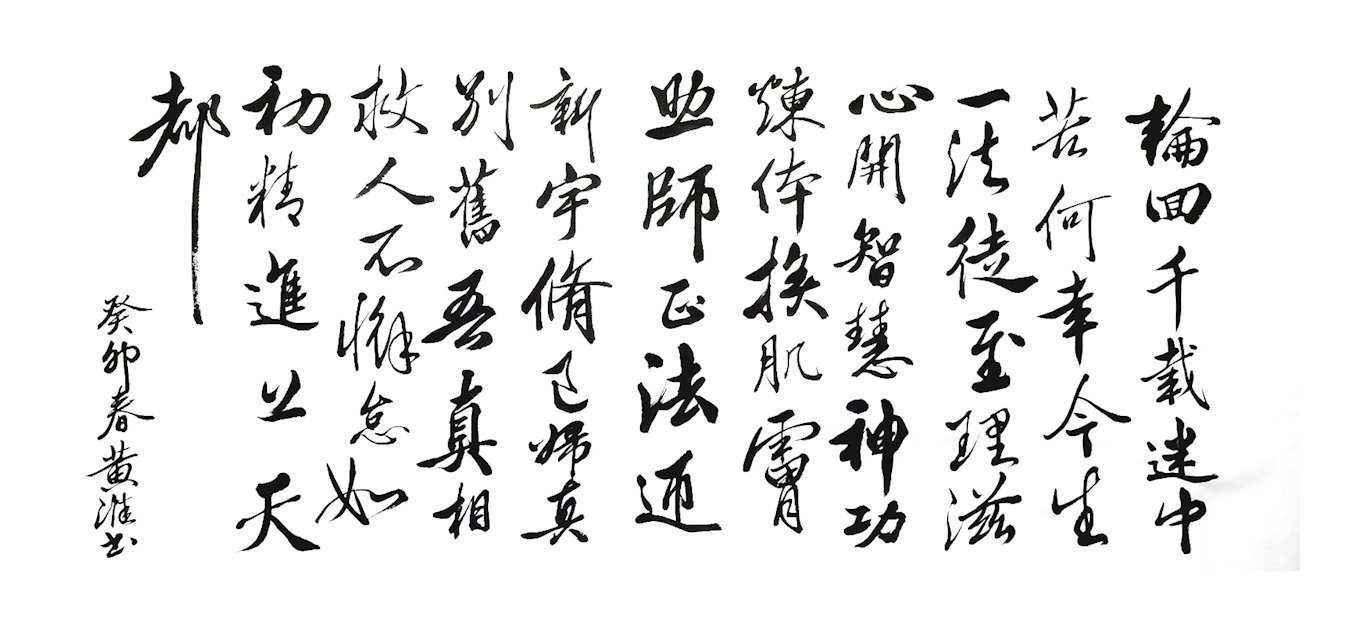 輪回千載迷中
苦何幸今生
一法徒至理滋
心開智慧神功
煉体換肌膚
助師正法通
新宇脩己歸真
別舊吾真相
救人不懈怠如
初精進上天
都
癸卯春黄淮书